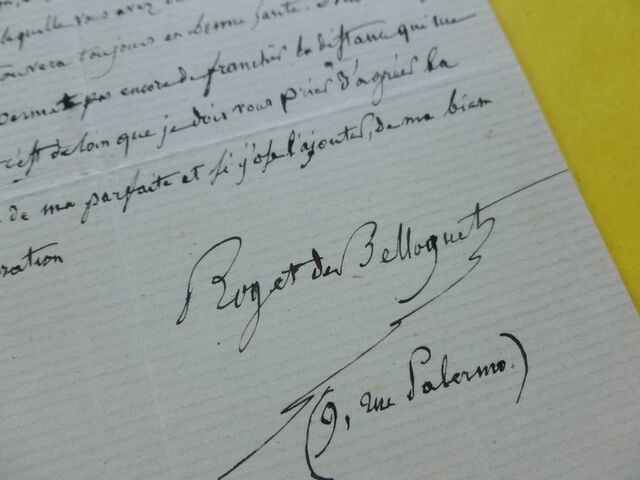 laquelle vous avez
trouvera toujours en bonne santé.
permet pas encore de franchir la distance qui me
c'est de loin que je dois vous prier d'agréer la
de ma parfaite et si j'ose l'ajouter, de ma bien
ration
Roget de Belloguet
(9, rue Palermo.)